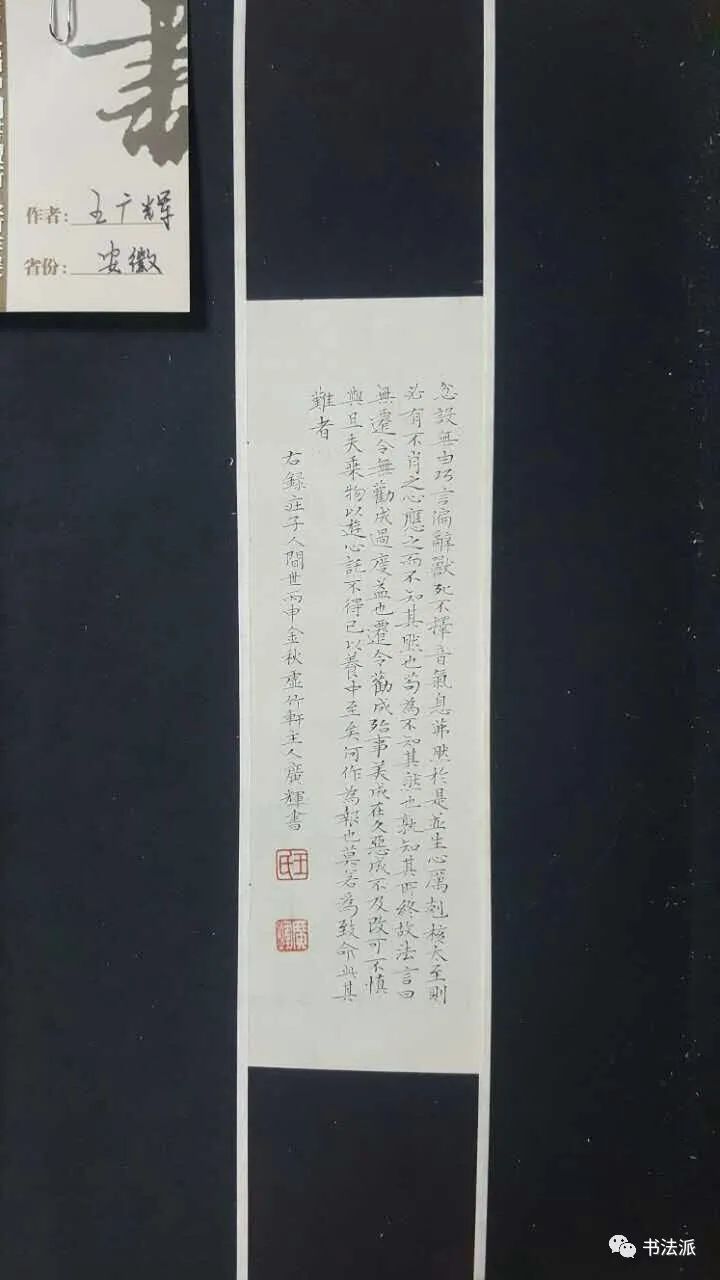 作者：王广辉
省份：安徽
忿設無由巧言偏辭獸死不擇音氣息茀然於是並生心厲剋核太至則
必有不肖之心應之而不知其然也苟為不知其然也孰知其所終故法言曰
無遷令無勸成過度益也遷令勸成殆事美成在久惡成不及改可不慎
與且夫乘物以遊心託不得已以養中至矣何作為報也莫若為致命此其
難者
右録莊子人間世丙申金秋虛竹軒主人廣輝書
王氏
廣輝
书法派